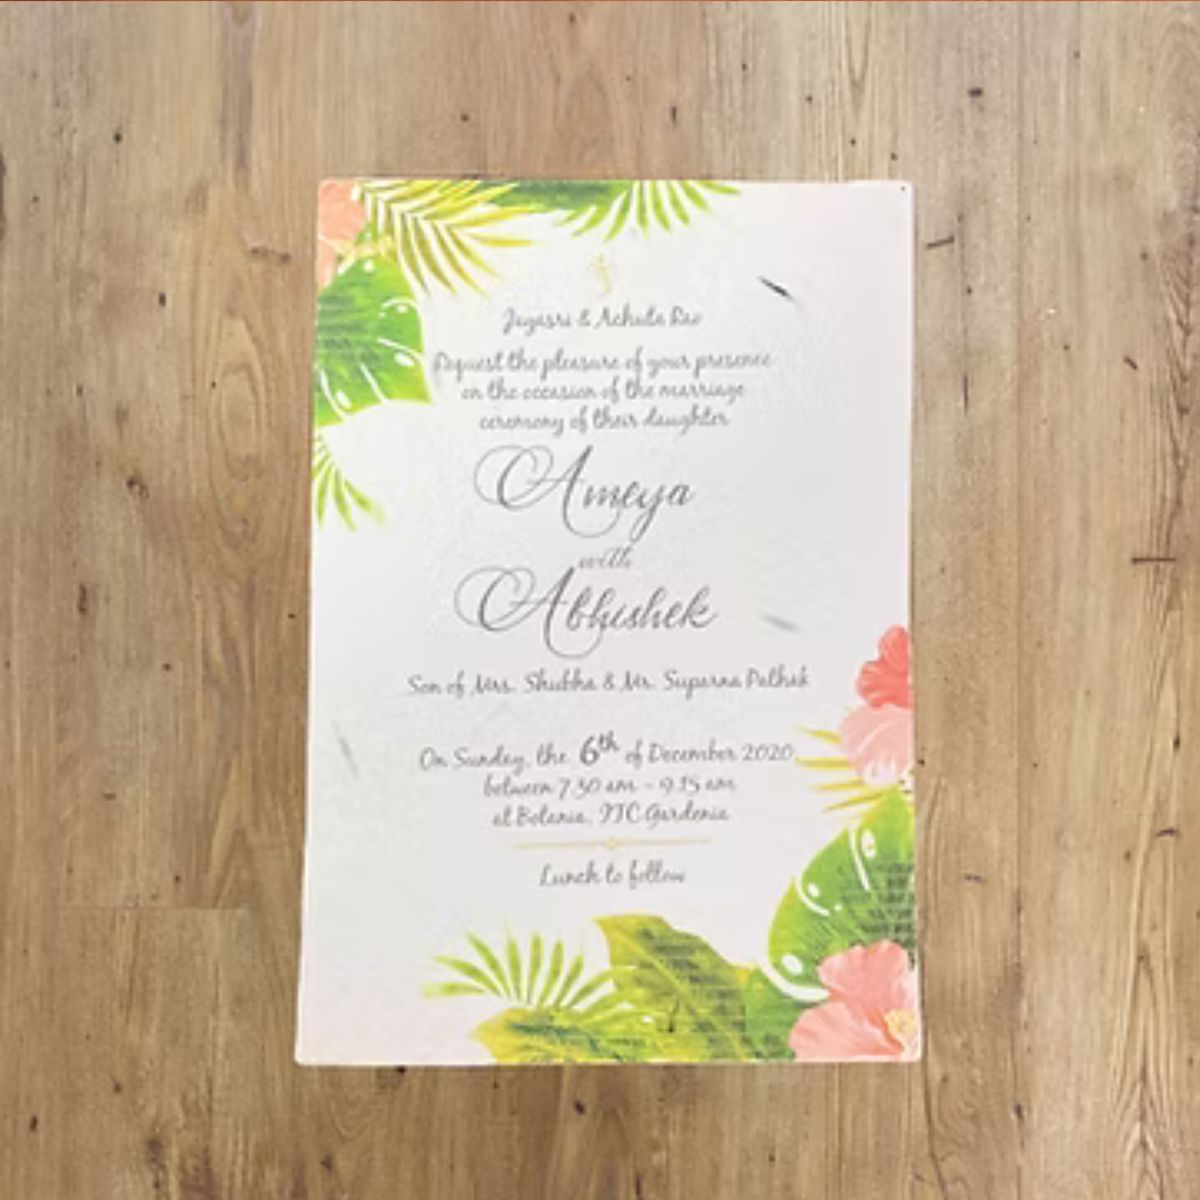 Jayasri & Achuta Rao
Request the pleasure of your presence
on the occasion of the marriage
ceremony of their daughter
Ameya
with
Abhishek
Son of Mrs. Shubha & Mr. Suparna Pathak
On Sunday, the 6th of December 2020
between 7.30 am - 9.15 am
at Botania, ITC Gardenia
Lunch to follow